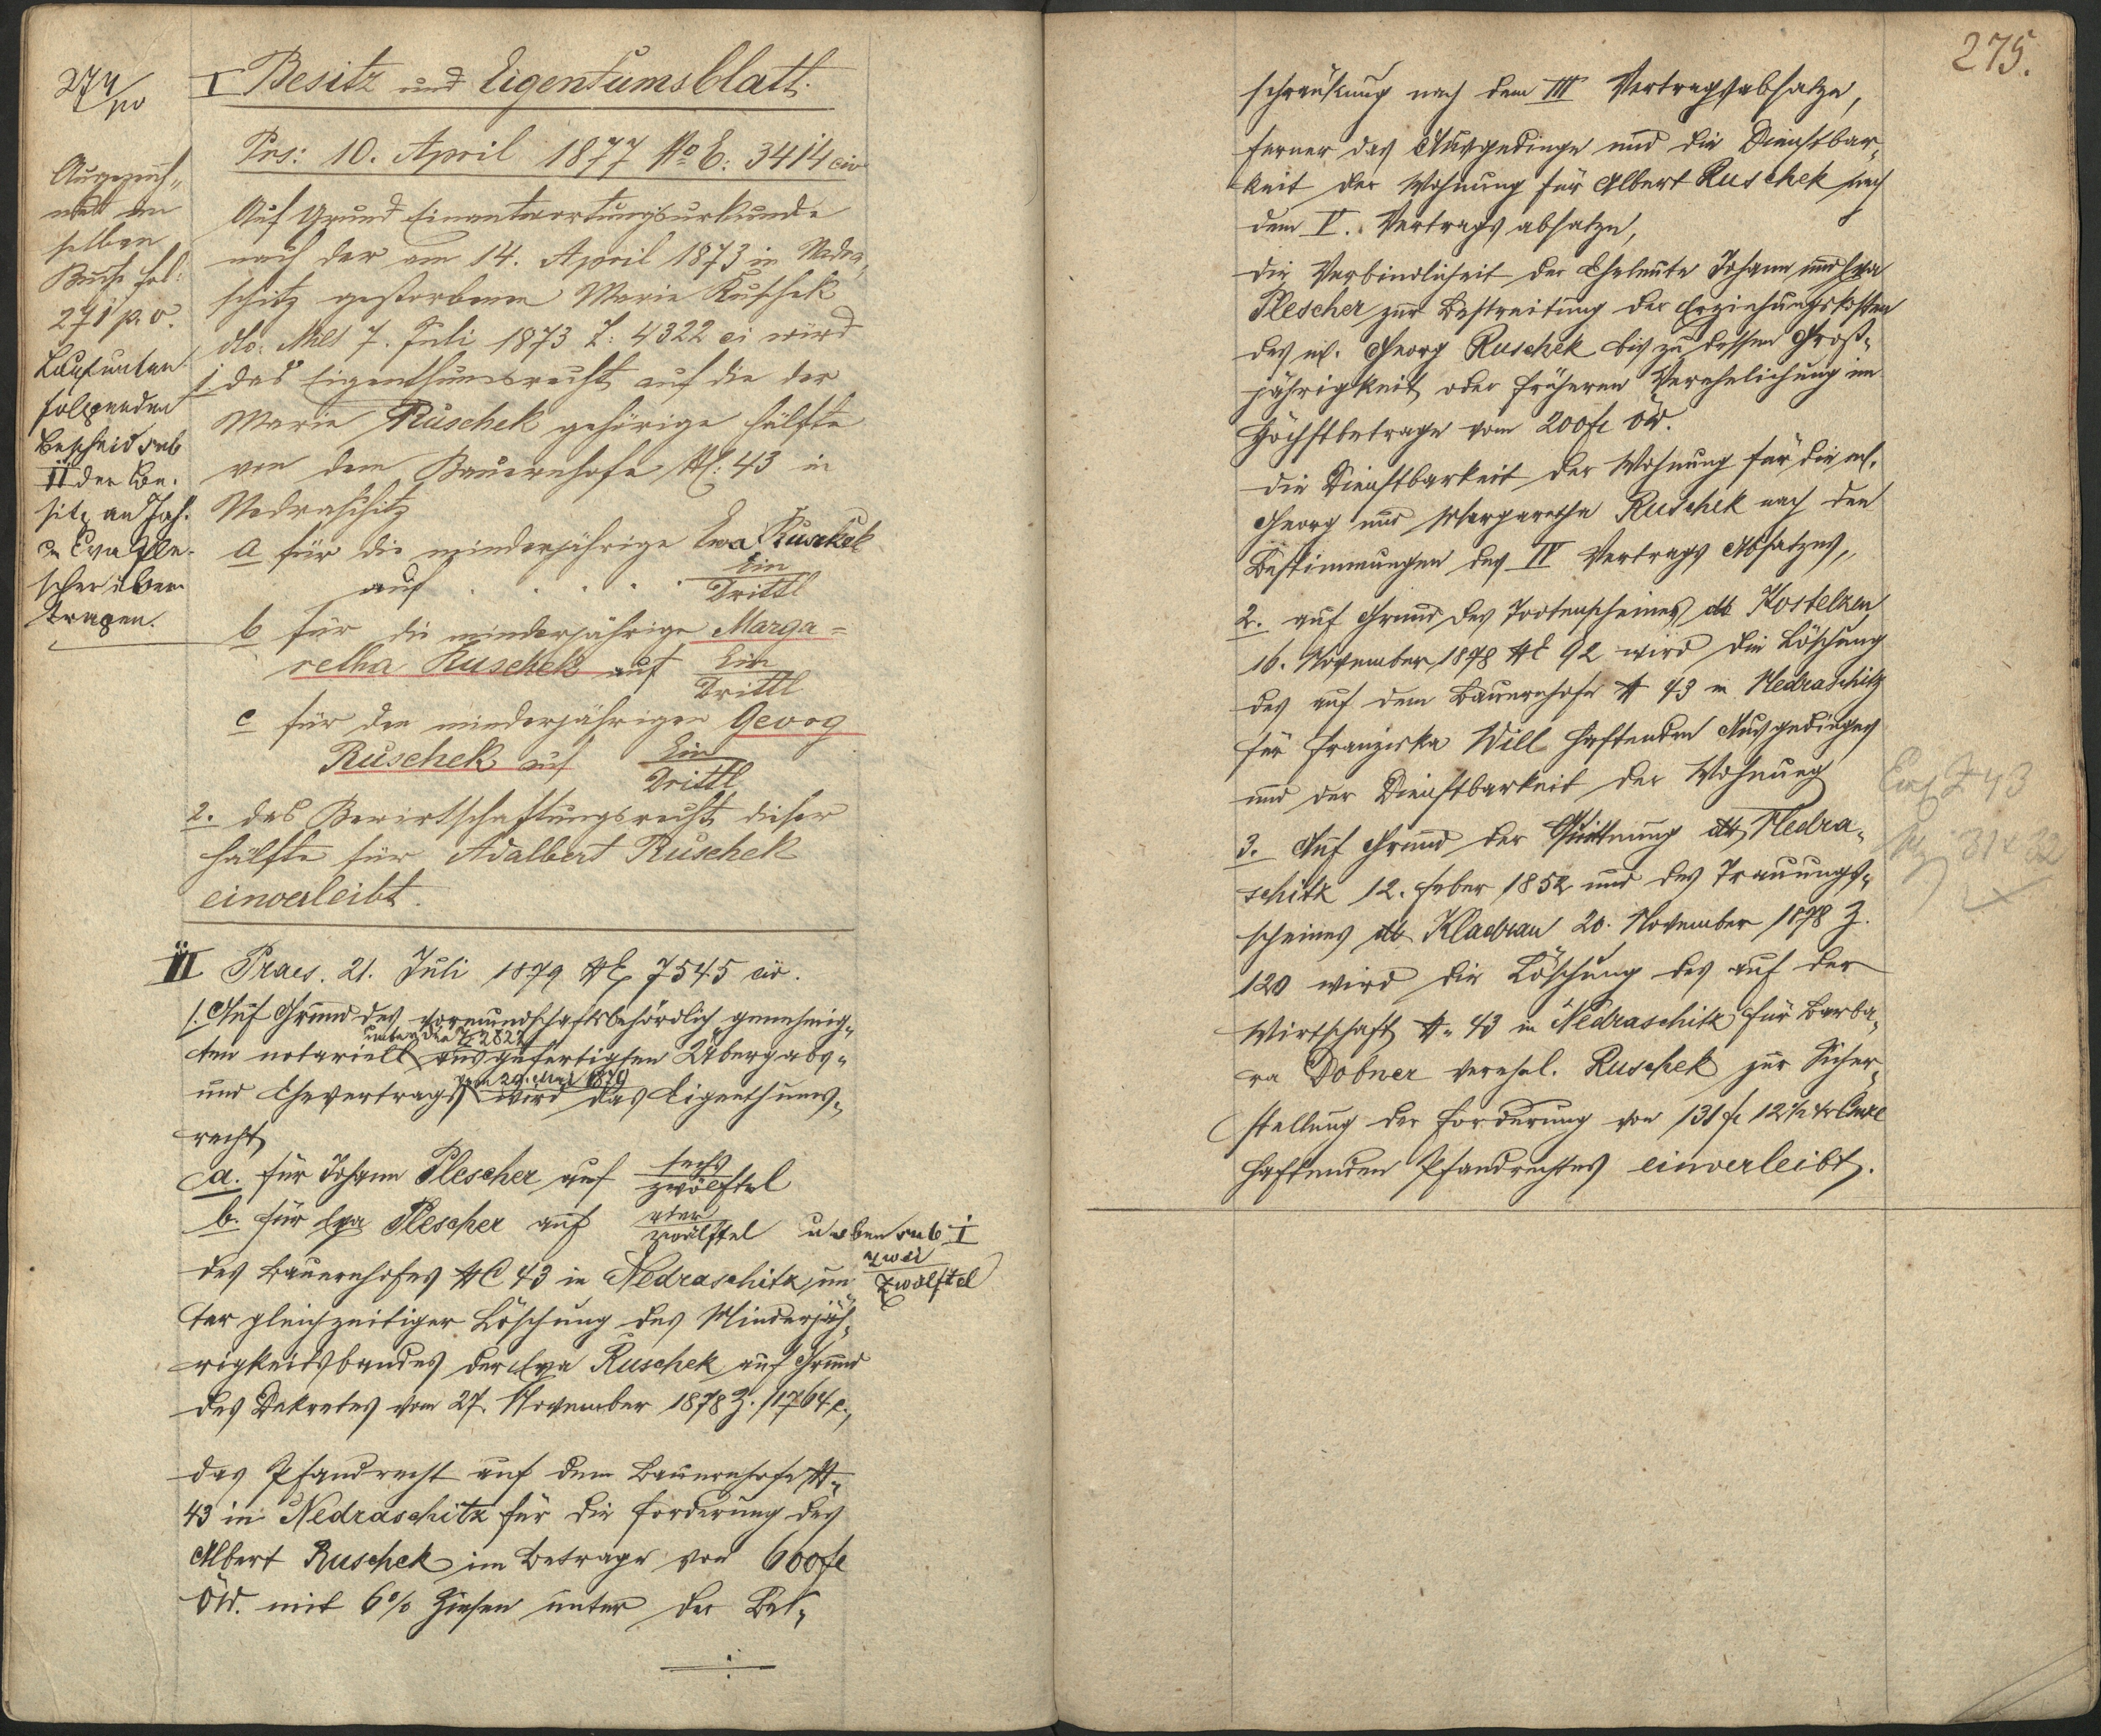 274/po
I Besitz und Eigentumsblatt.
Prs: 10. April 1877 No E: 3414 civ
Auf Grund Einantwortungsurkunde
nach der am 14. April 1873 in Nedra„
schitz gestorbenen Marie Ruschek
dto. Mies 7. Juli 1873 Z: 4322 ci wird
1. das Eigenthumsrecht auf die der
Marie Ruschek gehörige Hälfte
von dem Bauernhofe NC: 43 in
Nedraschitz
a für die minderjährige Eva Ruschek
auf . . . . . Ein
Drittl
b für die minderjährige Marga=
retha Ruschek auf Ein
Drittl
c für den minderjährigen Georg
Ruschek auf Ein
Drittl
2. das Bewirtschaftungsrecht dieser
Hälfte für Adalbert Ruschek
einverleibt.
Ausgezeich„
net im
selben
Buche fol:
271 p. v.
Laut unten
folgenden
Bescheid sub
II der Be-
sitz an Joh.
u. Eva Ple-
scher über-
tragen.
II Praes. 21. Juli 1879 NE 7545 civ.
1. Auf Grund des vormundschaftsbehördlich genehmig„
unter der Z 2827
ten notariell ausgefertigten Übergabs„
vom 29. Mai 1879
und Ehevertrags wird das Eigenthums„
recht
a. für Johann Plescher auf sechs
zwölftel
b. für Eva Plescher auf vier
zwölftel u oben sub I
zwei
zwölftel
des Bauernhofes NC 43 in Nedraschitz, un„
ter gleichzeitiger Löschung des Minderjäh„
rigkeitsbandes der Eva Ruschek auf Grund
des Dekretes vom 27. November 1878 Z. 11764 c.,
das Pfandrecht auf dem Bauernhofe N„
43 in Nedraschitz für die Forderung des
Albert Ruschek im Betrage von 600 fl
ÖW. mit 6% Zinsen unter der Be„
275.
schränkung nach dem III Vertragsabsatze,
ferner das Ausgedinge und die Dienstbar„
keit der Wohnung für Albert Ruschek nach
dem V. Vertrags absatze,
die Verbindlichkeit der Eheleute Johann und Eva
Plescher zur Bestreitung der Erziehungskosten
des mj. Georg Ruschek bis zu dessen Groß„
jährigkeit oder früheren Verehelichung im
Höchstbetrage vom 200 fl ÖW.
die Dienstbarkeit der Wohnung für die mj.
Georg und Margarethe Ruschek nach den
Bestimmungen des IV Vertrags Absatzes,
2. auf Grund des Todtenscheines dto Kostelzen
16. November 1878 NE 92 wird die Löschung
des auf dem Bauernhofe N 43 in Nedraschitz
für Franziska Will haftenden Ausgedinges
und der Dienstbarkeit der Wohnung
3. Auf Grund der Quittung dto Nedra„
schitz 12. Feber 1852 und des Trauungs„
scheines dto Kladrau 20. November 1878 Z.
120 wird die Löschung des auf der
Wirtschaft N. 43 in Nedraschitz für Barba„
ra Dobner verehel. Ruschek zur Sicher„
stellung der Forderung von 131 fl 12½ kr
haftenden Pfandrechtes einverleibt.
Einl Z 43
31 u 32